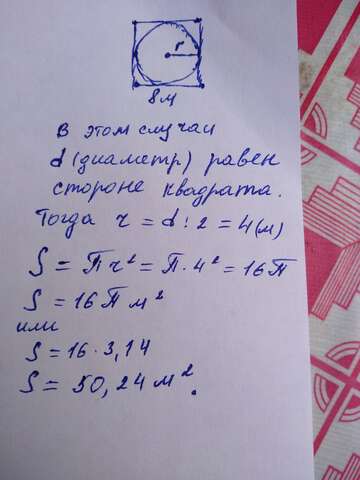 r
8м
В этом случаи
d (диаметр) равен
стороне квадрата.
Тогда r = d : 2 = 4(м)
S = Пr² = П · 4² = 16П
S = 16П м²
или
S = 16 · 3,14
S = 50,24 м².